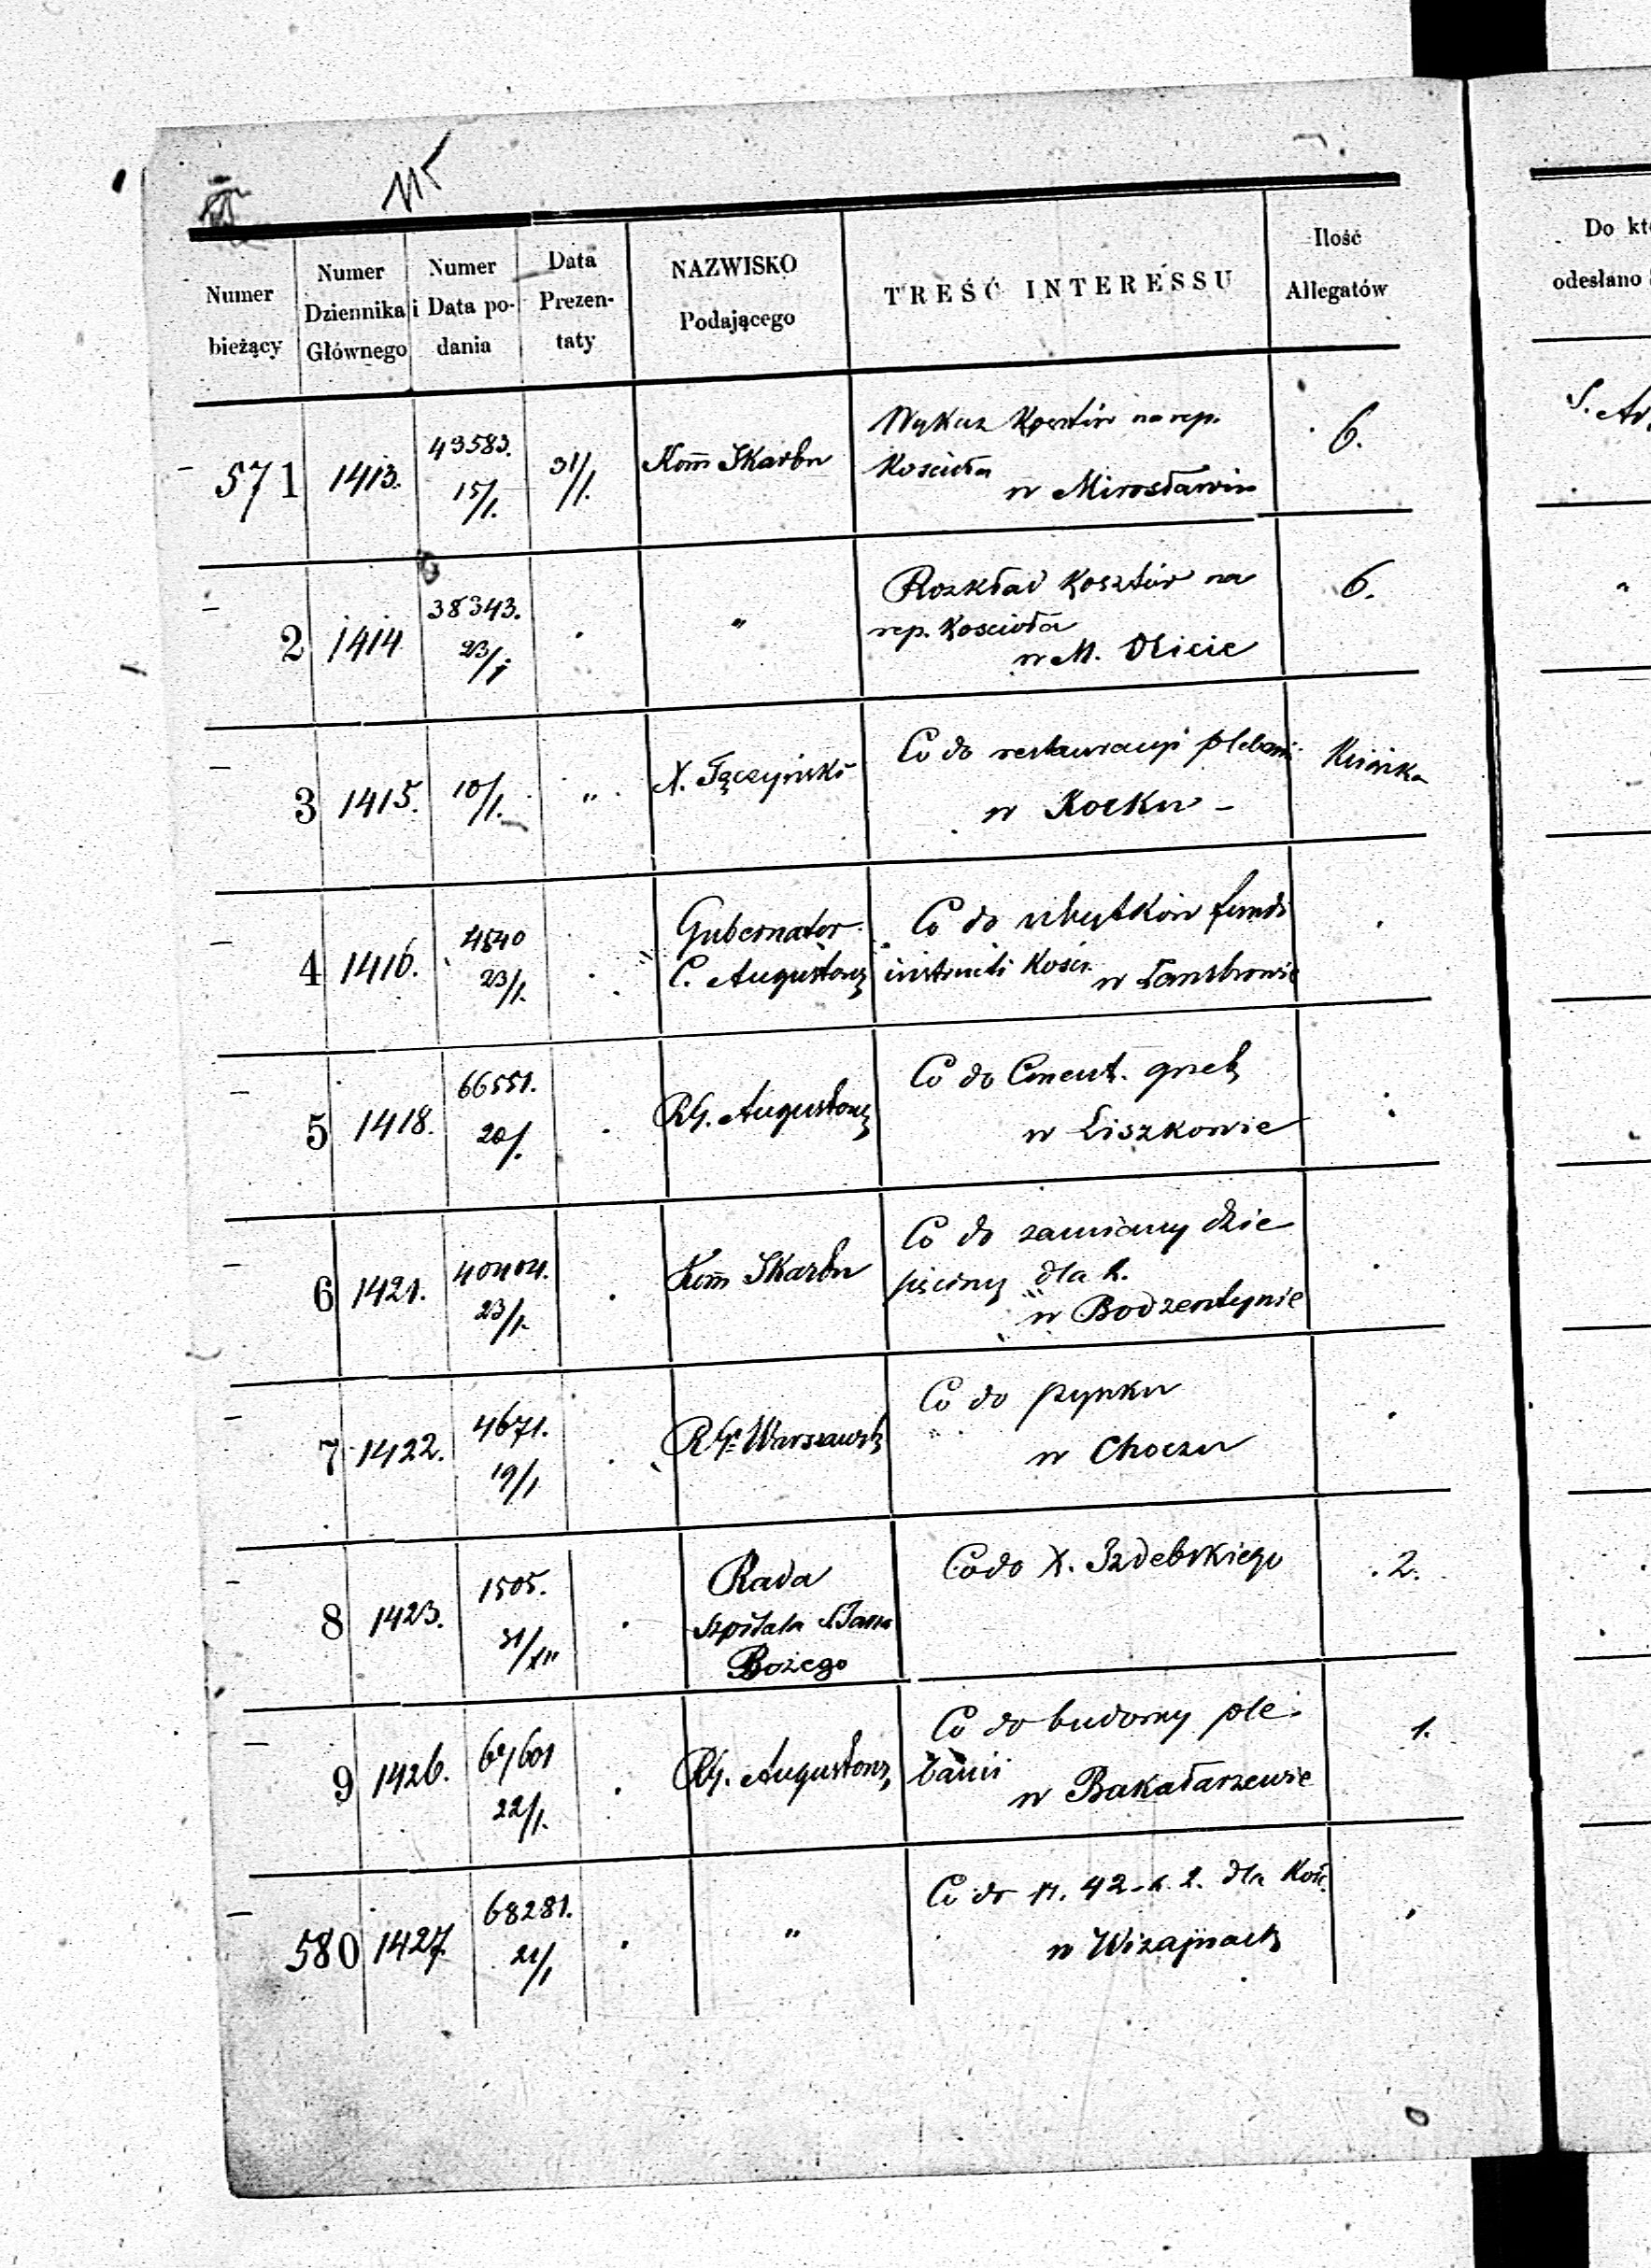 115
Numer bieżący
Numer Dziennika Głównego
Numer i Data podania
Data Prezentaty
NAZWISKO Podającego
TREŚĆ INTERESSU
Ilość Allegatów
Do kt
odesłano
571 1413. 43583. 15/1. 31/1. Kom̃ Skarbu Wykaz Kosztów na rep. Kościoła w Mirosławiu 6.
2 1414 38343. 23/1 " Rozkład Kosztów na rep. Kościoła w M. Olicie 6.
3 1415. 10/1. " X. Łączyński Co do restauracyi plebanii w Kocku –
4 1416. 4540 23/1. " Gubernator C. Augustows Co do ubytków fundi instructi Kośc. w
5 1418. 66551. 20/. RG. Augustows Co do w Liszkowie
6 1421. 40404. 23/1. Kom̃ Skarbu Co do zamiany dzie sięciny dla k. w Bodzentynie
7 1422. 4671. 19/1 RG. Warszawsk Co do rynku w Choczu
8 1423. 1505. 31/XII Rada Szpitala S Jana Bożego Co do X. 2.
9 1426. 67601 22/1. RG. Augustows Co do budowy ple- banii w Bakałarzewie 1.
580 1427. 68281. 21/1 " Co do 42 k. 2. dla Kość. w Wiżajnach